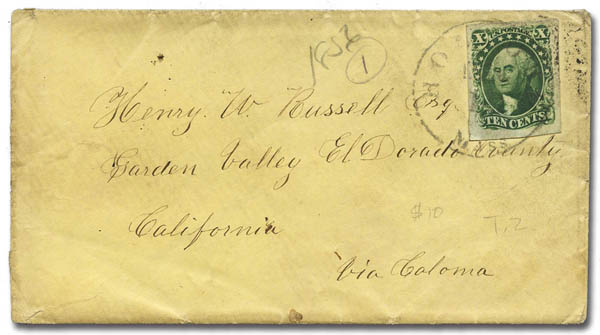 X U.S. POSTAGE X
TEN CENTS
MASS
1
Henry. W. Russell Esq
Garden Valley El Dorado County
California
$10
T.2
Via Coloma